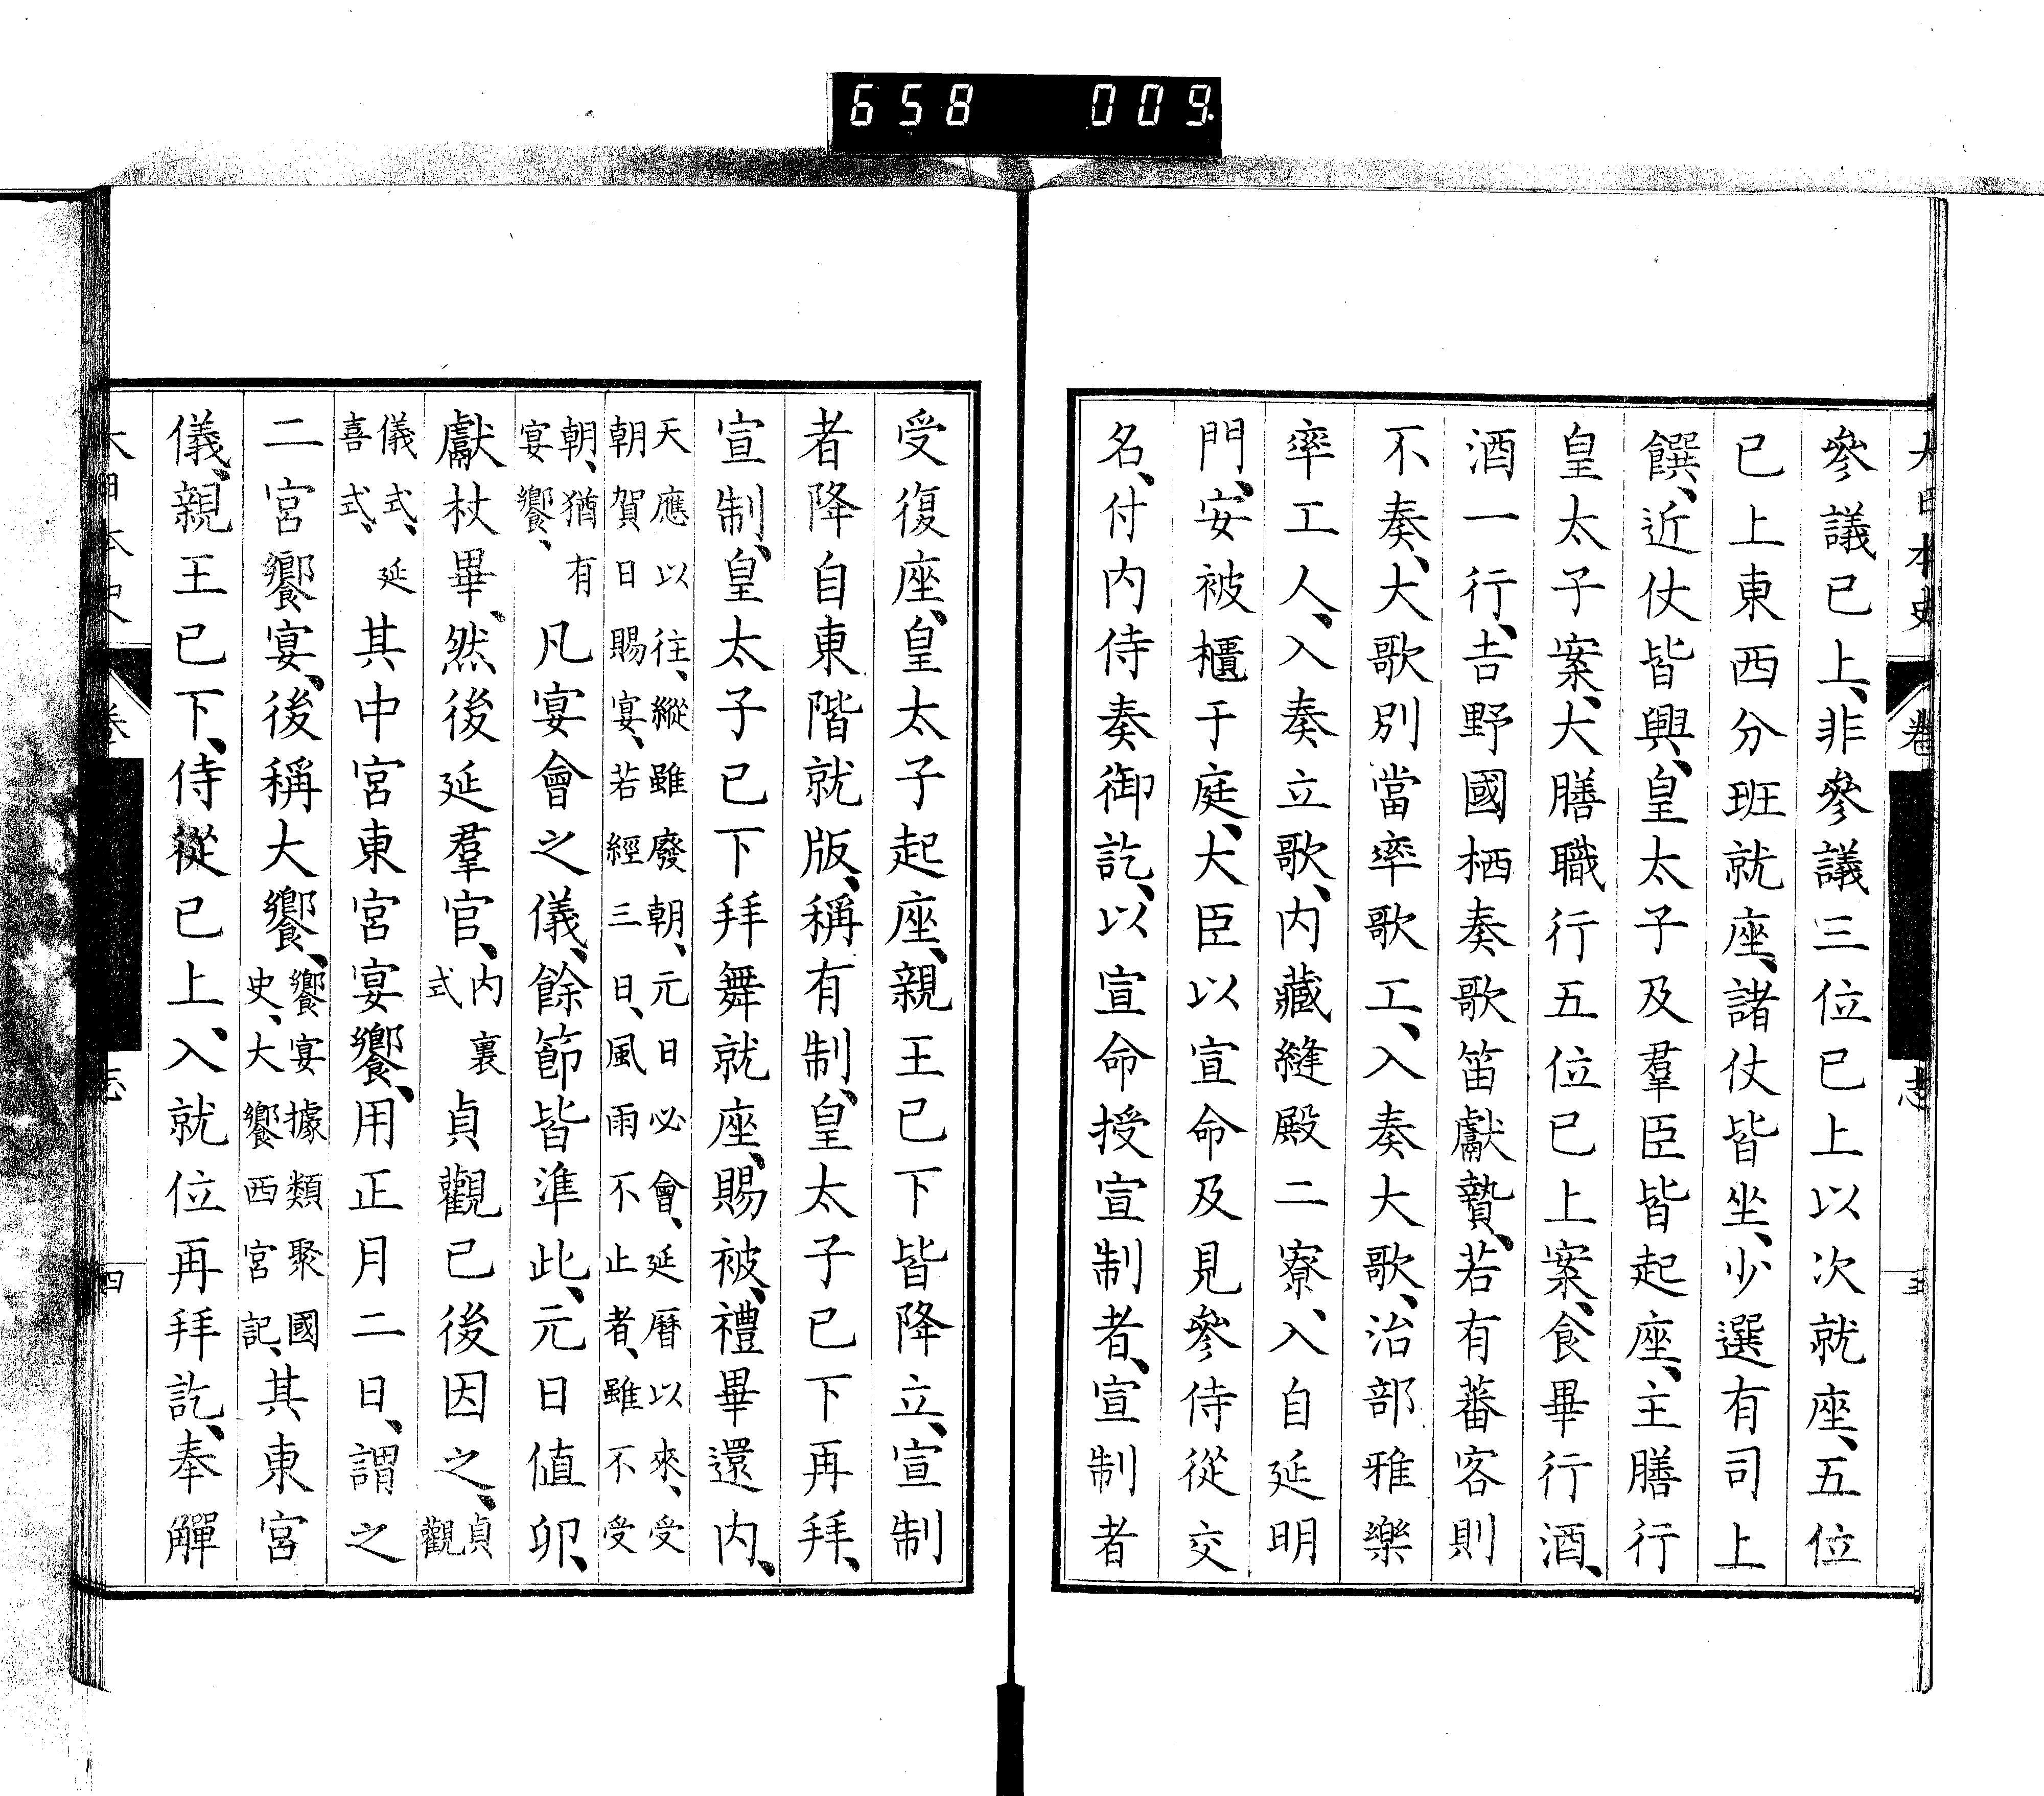 658 009
大日本史 卷 志 三
參議已上、非參議三位已上以次就座、五位
已上東西分班就座、諸仗皆坐、少選有司上
饌、近仗皆興、皇太子及羣臣皆起座、主膳行
皇太子案、大膳職行五位已上案、食畢行酒、
酒一行、吉野國栖奏歌笛獻贄、若有蕃客則
不奏、大歌別當率歌工、入奏大歌、治部雅樂
率工人、入奏立歌、內藏縫殿二寮、入自延明
門、安被櫃于庭、大臣以宣命及見參侍從交
名、付內侍奏御訖、以宣命授宣制者、宣制者
受復座、皇太子起座、親王已下皆降立、宣制
者降自東階就版、稱有制、皇太子已下再拜、
宣制、皇太子已下拜舞就座、賜被、禮畢還內、
天應以往、縱雖廢朝、元日必會、延曆以來、受
朝賀日賜宴、若經三日、風雨不止者、雖不受
朝、猶有
宴饗、
凡宴會之儀、餘節皆準此、元日値卯、
獻杖畢、然後延羣官、
內裏
式
貞觀已後因之、
貞
觀
儀式、延
喜式、
其中宮東宮宴饗、用正月二日、謂之
二宮饗宴、後稱大饗、
饗宴據類聚國
史、大饗西宮記、
其東宮
儀、親王已下、侍從已上、入就位再拜訖、奉觶
大日本史 卷 志 四